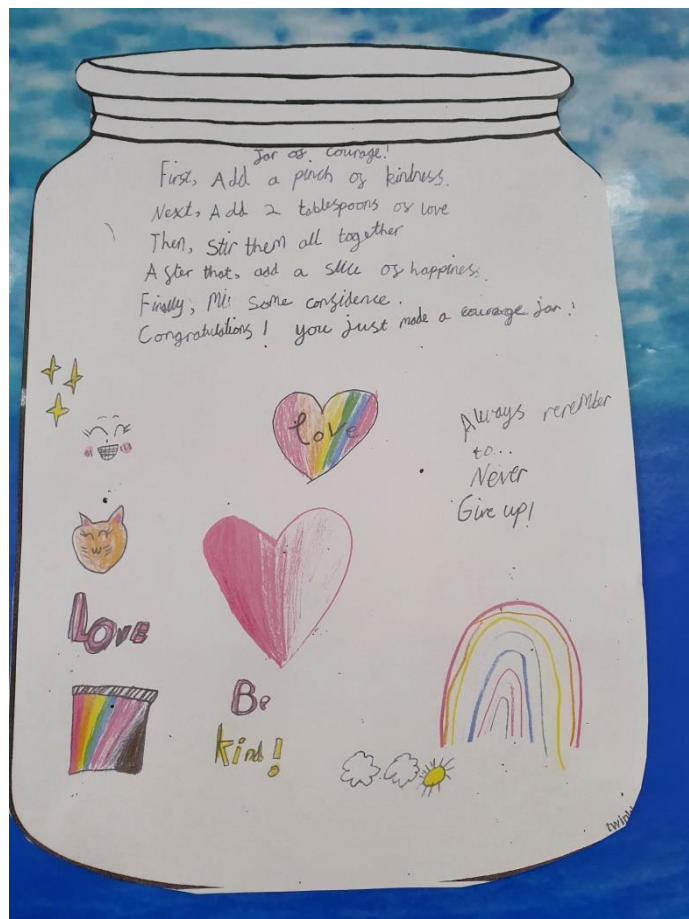 Jar of courage!
First, Add a pinch of kindness.
Next, Add 2 tablespoons of love
Then, Stir them all together
After that, add a slice of happiness.
Finally, Mix some confidence.
Congratulations! you just made a courage jar!
love
Always remember
to...
Never
Give up!
Love
Be
kind!